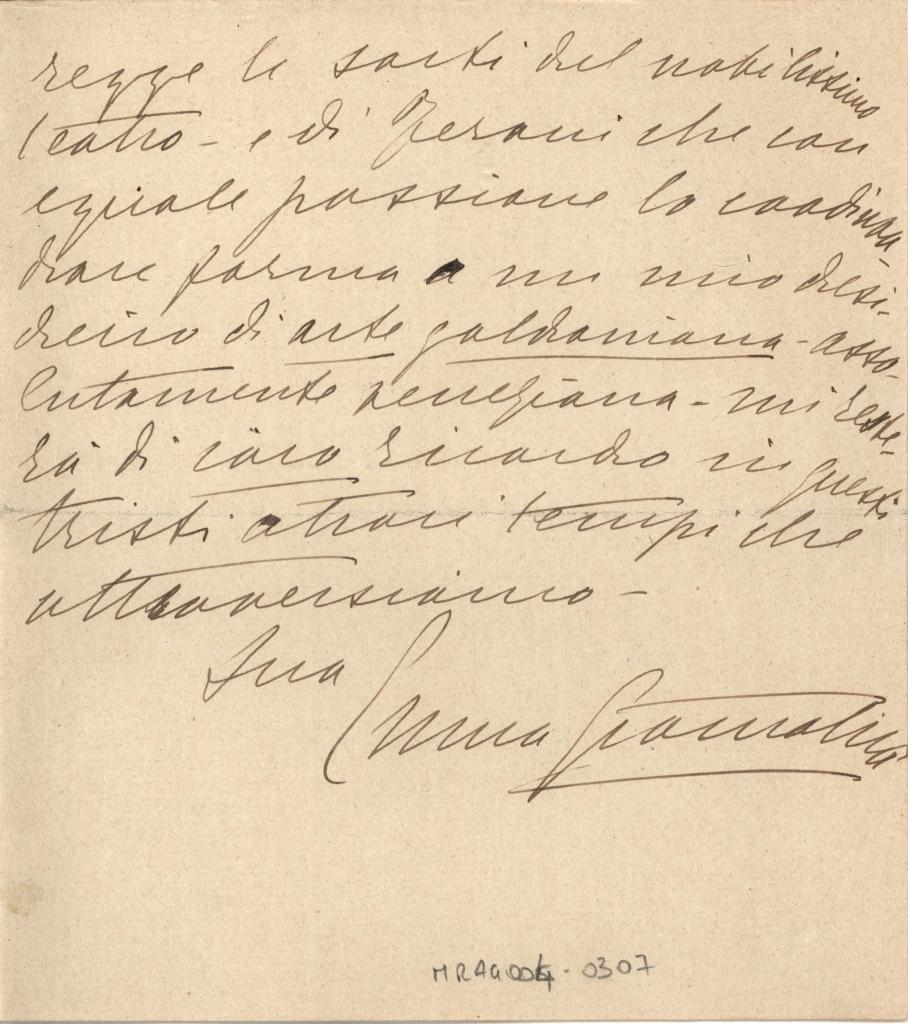 regge le sorti del nobilissimo
teatro - e di Zerani che con
eguale passione lo coadiuva -
dare forma a un mio desi-
derio di arte goldoniana - asso-
lutamente veneziana - mi reste-
rà di caro ricordo in questi
tristi atroci tempi che
attraversiamo -
Sua
Emma Gramatica
MRAG004-0307